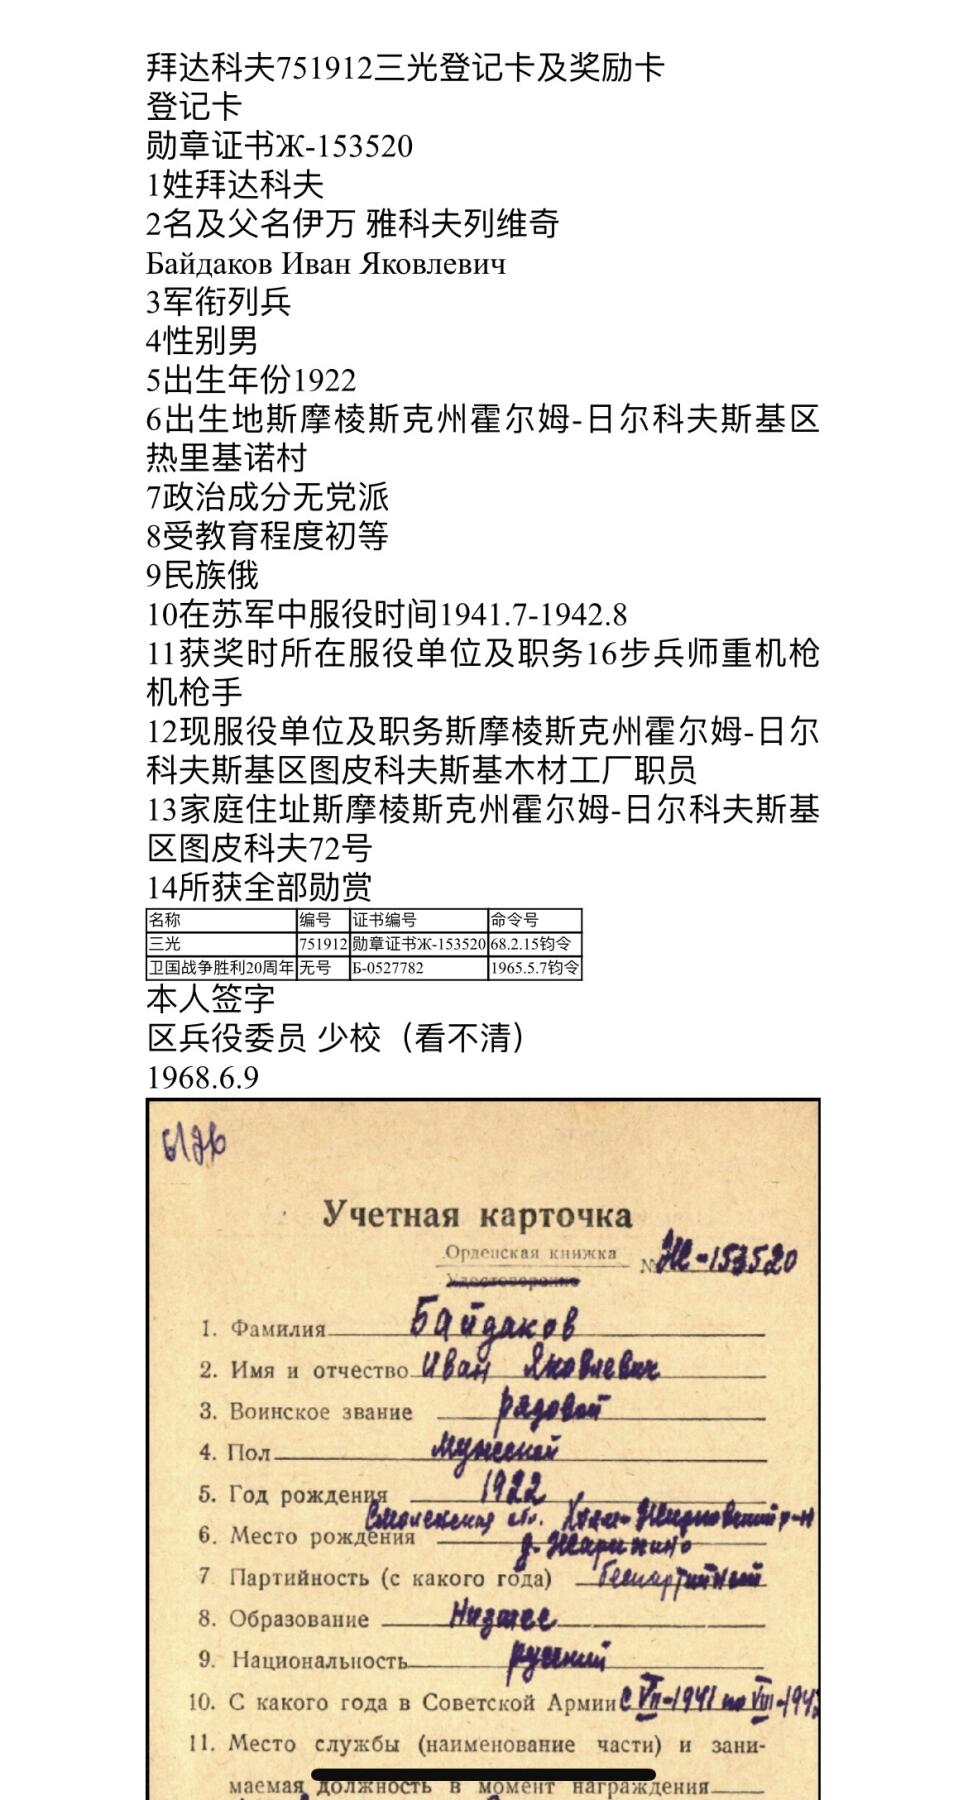 拜达科夫751912三光登记卡及奖励卡
登记卡
勋章证书Ж-153520
1姓拜达科夫
2名及父名伊万 雅科夫列维奇
Байдаков Иван Яковлевич
3军衔列兵
4性别男
5出生年份1922
6出生地斯摩棱斯克州霍尔姆-日尔科夫斯基区
热里基诺村
7政治成分无党派
8受教育程度初等
9民族俄
10在苏军中服役时间1941.7-1942.8
11获奖时所在服役单位及职务16步兵师重机枪
机枪手
12现服役单位及职务斯摩棱斯克州霍尔姆-日尔
科夫斯基区图皮科夫斯基木材工厂职员
13家庭住址斯摩棱斯克州霍尔姆-日尔科夫斯基
区图皮科夫72号
14所获全部勋赏
名称 编号 证书编号 命令号
三光 751912 勋章证书Ж-153520 68.2.15钧令
卫国战争胜利20周年 无号 Б-0527782 1965.5.7钧令
本人签字
区兵役委员 少校（看不清）
1968.6.9
Учетная карточка
Орденская книжка
№ Ж-153520
Удостоверение
1. Фамилия Байдаков
2. Имя и отчество Иван Яковлевич
3. Воинское звание рядовой
4. Пол мужской
5. Год рождения 1922
Смоленская обл. Холм-Жирковский р-н
6. Место рождения
7. Партийность (с какого года) беспартийный
8. Образование Низшее
9. Национальность русский
10. С какого года в Советской Армии с VII-1941 по VIII-1942
11. Место службы (наименование части) и зани-
маемая должность в момент награждения